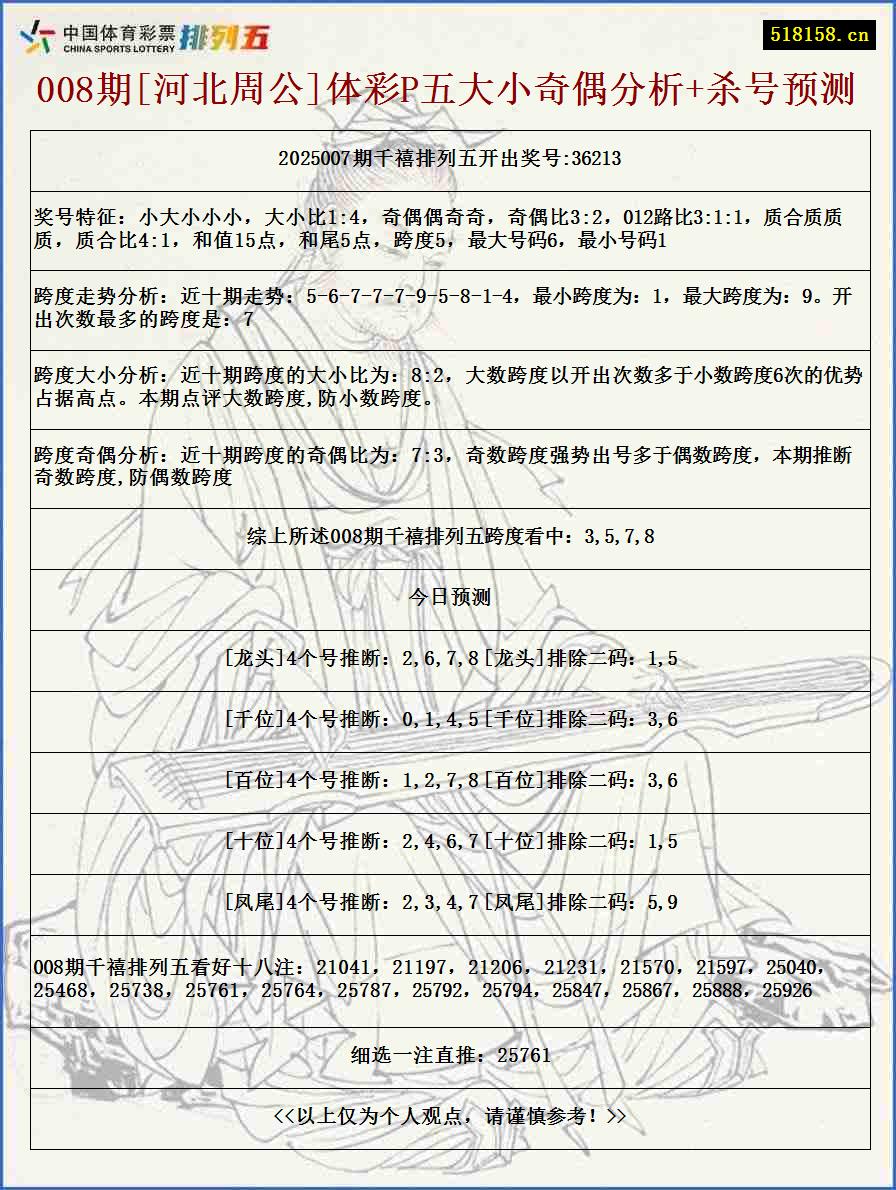 中国体育彩票
CHINA SPORTS LOTTERY
排列五
518158.cn
008期[河北周公]体彩P五大小奇偶分析+杀号预测
2025007期千禧排列五开出奖号:36213
奖号特征：小大小小小，大小比1:4，奇偶偶奇奇，奇偶比3:2，012路比3:1:1，质合质质
质，质合比4:1，和值15点，和尾5点，跨度5，最大号码6，最小号码1
跨度走势分析：近十期走势：5-6-7-7-7-9-5-8-1-4，最小跨度为：1，最大跨度为：9。开
出次数最多的跨度是：7
跨度大小分析：近十期跨度的大小比为：8:2，大数跨度以开出次数多于小数跨度6次的优势
占据高点。本期点评大数跨度,防小数跨度。
跨度奇偶分析：近十期跨度的奇偶比为：7:3，奇数跨度强势出号多于偶数跨度，本期推断
奇数跨度,防偶数跨度
综上所述008期千禧排列五跨度看中：3,5,7,8
今日预测
[龙头]4个号推断：2,6,7,8[龙头]排除二码：1,5
[千位]4个号推断：0,1,4,5[千位]排除二码：3,6
[百位]4个号推断：1,2,7,8[百位]排除二码：3,6
[十位]4个号推断：2,4,6,7[十位]排除二码：1,5
[凤尾]4个号推断：2,3,4,7[凤尾]排除二码：5,9
008期千禧排列五看好十八注：21041，21197，21206，21231，21570，21597，25040，
25468，25738，25761，25764，25787，25792，25794，25847，25867，25888，25926
细选一注直推：25761
<<以上仅为个人观点，请谨慎参考！>>